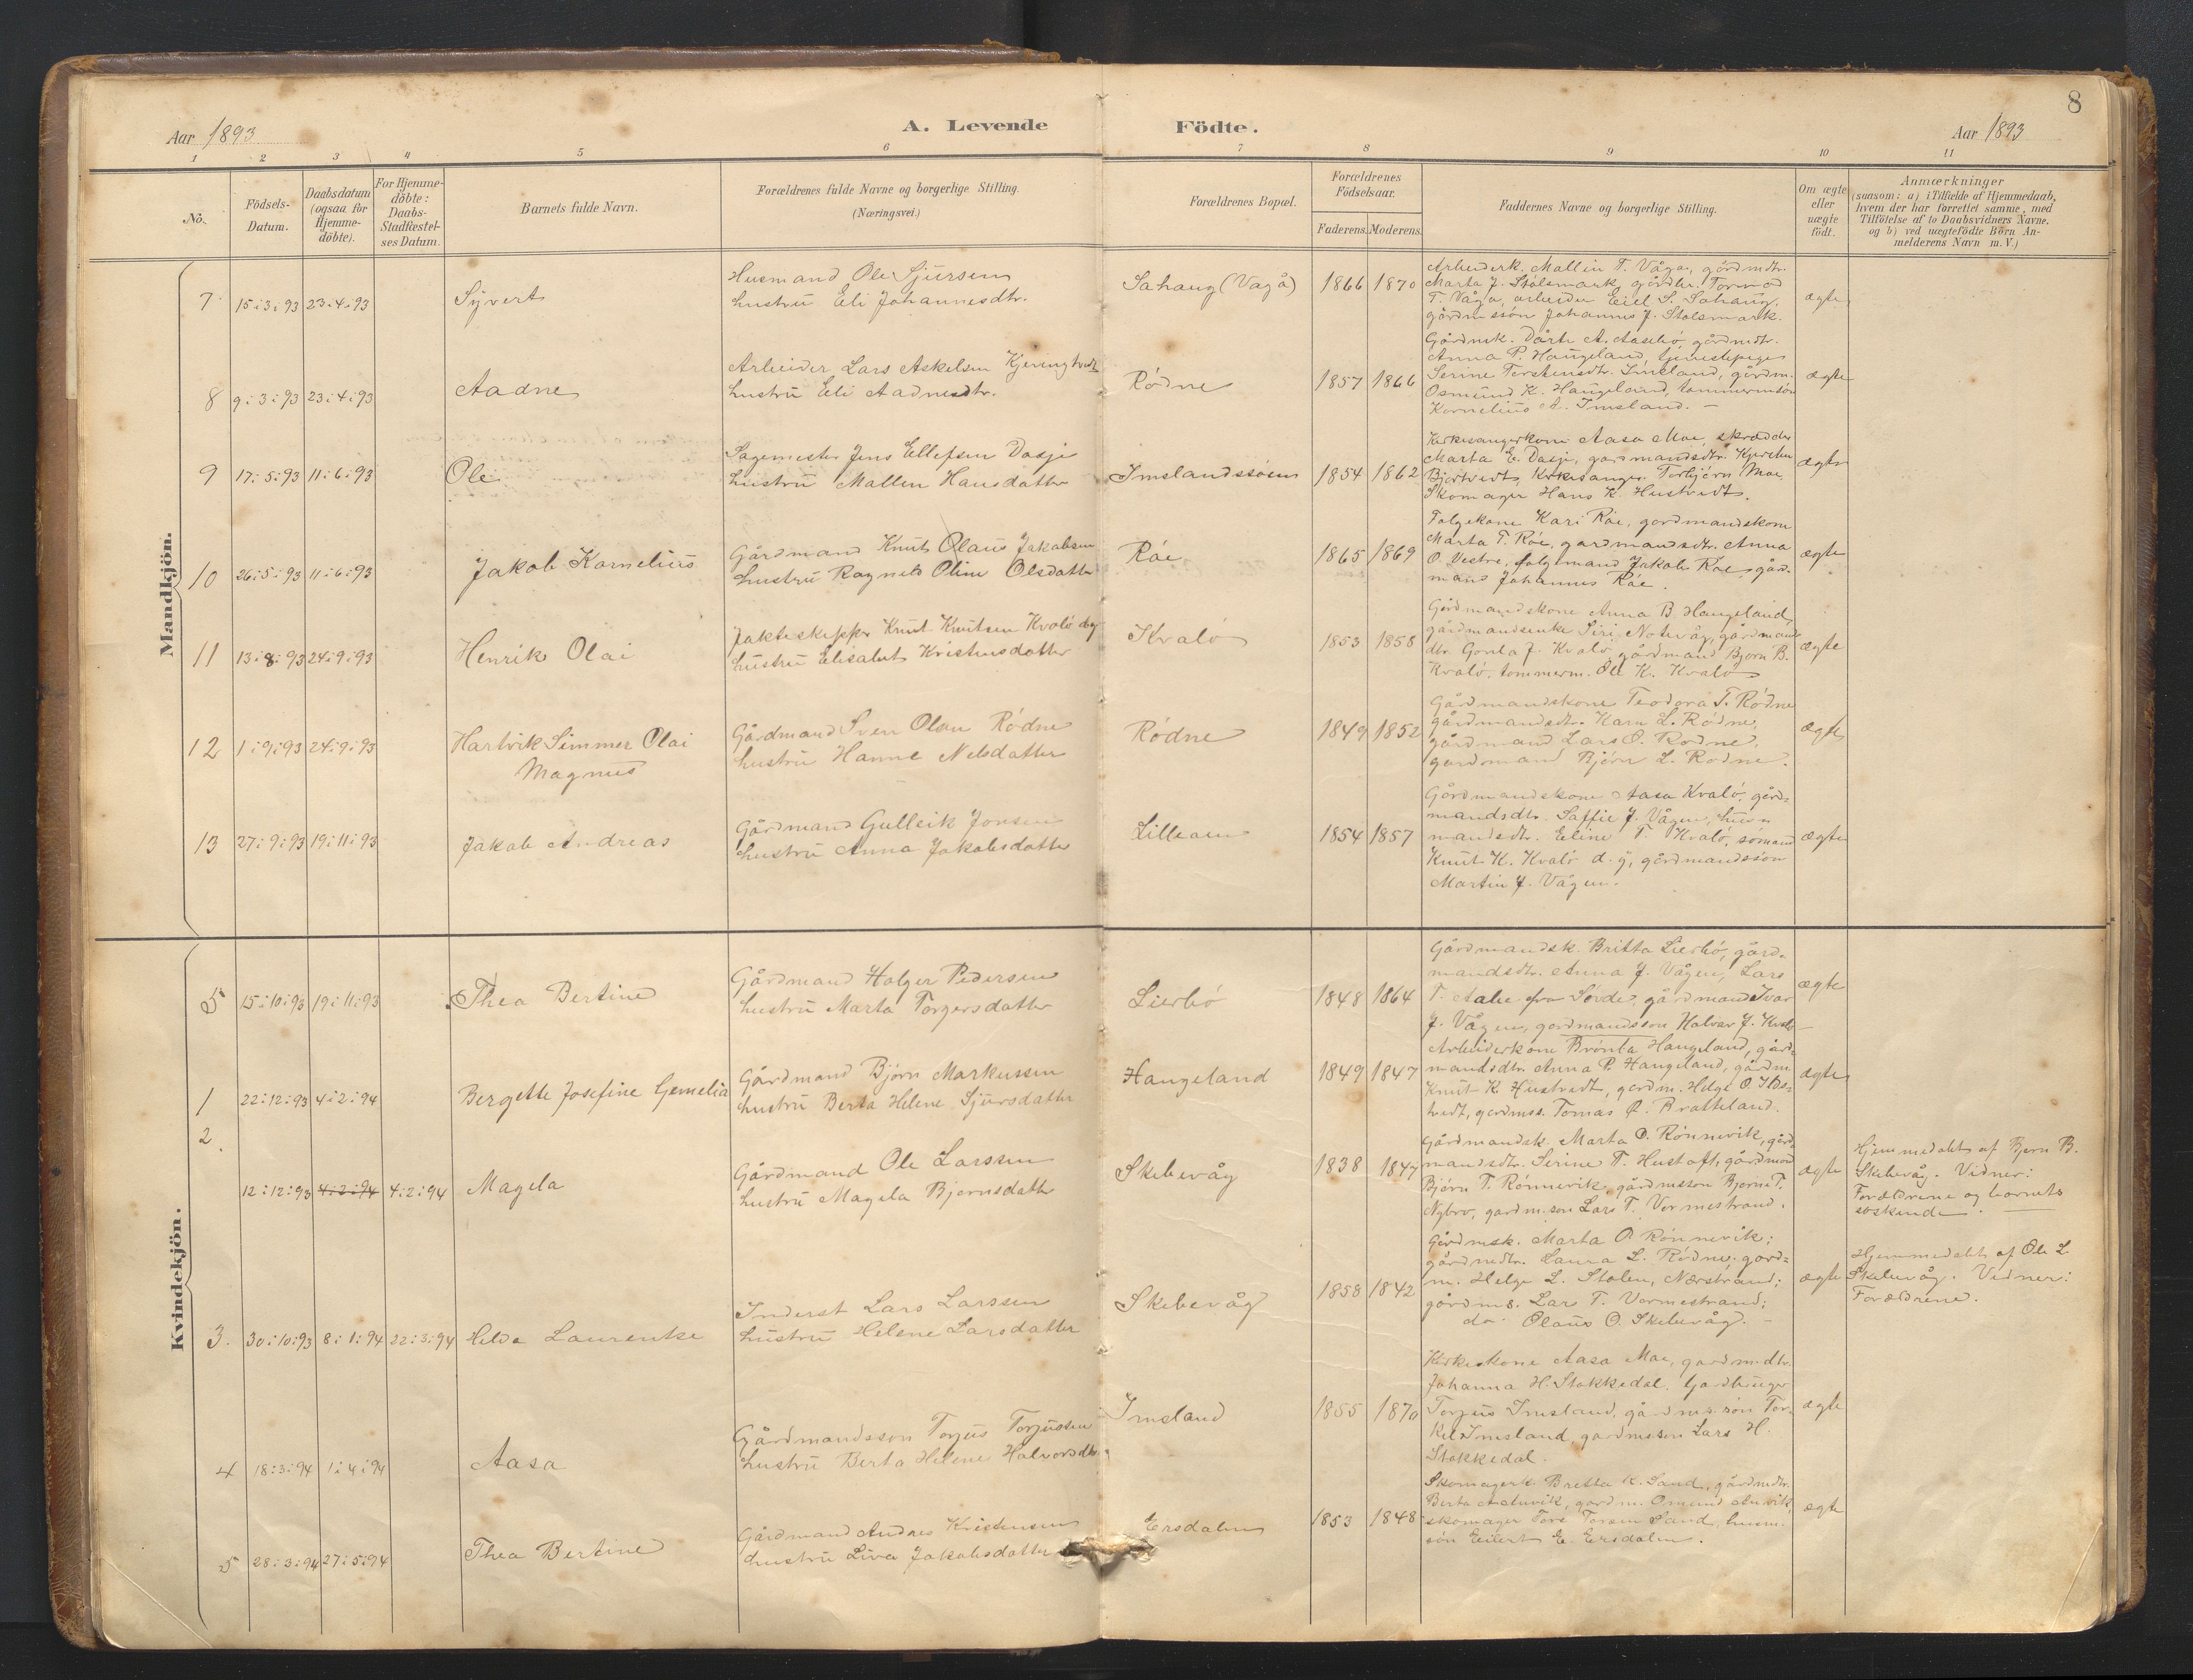 8
Aar 1893
A. Levende Födte.
Aar 1893
1 2 3 4 5 6 7 8 9 10 11
No.
Födsels-Datum.
Daabsdatum (ogsaa for Hjemme-döbte).
For Hjemme-döbte: Daabs-Stadfæstel-ses Datum.
Barnets fulde Navn.
Forældrenes fulde Navne og borgerlige Stilling.
(Næringsvei.)
Forældrenes Bopæl.
Forældrenes Födselsaar.
Faderens. Moderens.
Faddernes Navne og borgerlige Stilling.
Om ægte eller uægte födt.
Anmærkninger
(saasom: a) i Tilfælde af Hjemmedaab,
hvem der har forrettet samme, med
Tilföielse af to Daabsvidners Navne.
og b) ved uægtefödte Börn An-
melderens Navn m. V.)
Mandkjön.
7 15:3:93 23:4:93 Syvert
Husmand Ole Sjursen
hustru Eli Johannesdtr.
Sahaug (Vågå) 1866 1870
Arbeiderk. Mallin T. Våga, gårdmdtr.
Marta J. Stölsmark, gårdbr. Tormod
T. Våga, arbeider Eiel S. Sahaug,
gårdmssön Johannes J. Stölsmark.
ægte
8 9:3:93 23:4:93 Aadne
Arbeider Lars Askelsen Kjeringtvedt
hustru Eli Aadnesdtr.
Rödne 1857 1866
Gårdmk. Dårte A. Aaselö, gårdmdtr.
Anna P. Haugeland, tjenestepige
Serine Torstensdtr. Imsland, gårdm.
Osmund K. Haugeland, tømmermsön
Kornelius A. Imsland. –
ægte
9 17:5:93 11:6:93 Ole
Sagemester Jens Ellefsen Vasje
hustru Mallen Hansdatter
Imslandssöen 1854 1862
Kirkesangerkone Aasa Moe, skrædder
Marta E. Dasje, gardmandsdtr. Kjersten
Bjortvedt, Kirkesanger Torbjörn Moe,
Skomager Hans K. Hustvedt.
ægte
10 26:5:93 11:6:93 Jakob Kornelius
Gårdmand Knut Olaus Jakobsen
hustru Ragnild Oline Olsdatter
Råe 1865 1869
Folgekone Kari Råe, gardmandskone
Marta T. Råe, gardmandsdtr. Anna
O. Vestre, folgemand Jakob Råe, gård-
mand Johannes Råe.
ægte
11 13:8:93 24:9:93 Henrik Olai
Jakteskipper Knut Knutsen Kvalö d.y.
hustru Elisabet Kristensdatter
Kvalö 1853 1858
Gårdmandskone Anna B. Haugeland,
gårdmandsenke Siri Notevåg, gårdmands
dtr. Gonla J. Kvalö, gårdmand Bjorn B.
Kvalö, tommerm. Ole K. Kvalö
ægte
12 1:9:93 24:9:93 Hartvik Simmer Olai
Magnus
Gårdmand Sven Olsen Rödne
hustru Hanne Nelsdatter
Rödne 1849 1852
Gårdmandskone Teodora T. Rödne
gårdmandsdtr. Karn L. Rödne,
gårdmand Lars O. Rodne,
gårdmand Björn L. Rödne.
ægte
13 27:9:93 19:11:93 Jakob Andreas
Gårdmand Gulleik Jonsen
hustru Anna Jakobsdatter
Lilleaen 1854 1857
Gårdmandskone Aasa Kvalö, gård-
mandsdtr. Saffie J. Vågen, hus-
mandsdtr. Eline T. Kvalö, sömand
Knut K. Kvalö d. y., gårdmandssön
Martin J. Vågen.
ægte
Kvindekjön.
5 15:10:93 19:11:93 Thea Bertine
Gårdmand Holger Pedersen
hustru Marta Torgersdatter
Lierbö 1848 1864
Gårdmandsk. Britta Lierbö, gård-
mandsdtr. Anna J. Vågen, Lars
T. Aabe fra Sövde, gårdmand Ivar
J. Vågen, gardmandsson Halvar J. Kvalö
ægte
1 22:12:93 4:2:94 Bergette Josefine Gemelia
Gårdmand Björn Markussen
hustru Berta Helene Sjursdatter
Haugeland 1849 1847
Arbeiderkone Brönla Haugeland, gård-
mandsdtr. Anna P. Haugeland, gårdm.
Knut K. Hustvedt, gardm. Helge O. Hus-
tvedt, gardmss. Tomas A. Bratteland.
ægte
2. 12:12:93 4:2:94 4:2:94 Magela
Gårdmand Ole Larssen
hustru Magela Bjornsdatter
Skebevåg 1838 1847
Gårdmandsk. Marta O. Rönnevik, gård-
mandsdtr. Serine T. Hustoft, gårdmand
Björn T. Rönnevik, gårdmsson Bjorne T.
Nybro, gardm.sön Lars T. Vormestrand.
ægte
Hjemmedöbt af Bjorn B.
Skebevåg. Vidner:
Forældrene og barnets
söskende.
3. 30:10:93 8:1:94 22:3:94 Helda Laurentse
Inderst Lars Larssen
hustru Helene Larsdatter
Skebevåg 1858 1842
Gårdmsk. Marta O. Rönnevik;
gårdmdtr. Laura L. Rödne; gård-
m. Helge L. Stolen, Nærstrand;
gårdms. Lars T. Vormestrand;
do. Olaus O. Skebevåg. –
ægte
Hjemmedöbt af Ole L.
Skebevåg. Vidner:
Forældrene.
4 18:3:94 1:4:94 Aasa
Gårdmandsson Torjus Torjussen
hustru Berta Helene Halvorsdtr.
Imsland 1855 1870
Kirkeskone Aasa Moe, gardm.dtr.
Johanna H. Stakkedal, Gardbruger
Torjus Imsland, gårdms.sön Tor-
kel Imsland, gardmsson Lars H.
Stakkedal.
ægte
5 28:3:94 27:5:94 Thea Bertine
Gårdmand Andres Kristensen
hustru Liva Jakobsdatter
Ersdalen 1853 1848
Skomagerk. Bretta K. Sand, gårdmdtr.
Berta A. Anvik, gardm. Omund Anvik,
skomager Tore Toresen Sand, husm.-
sön Eilert E. Ersdalen.
ægte